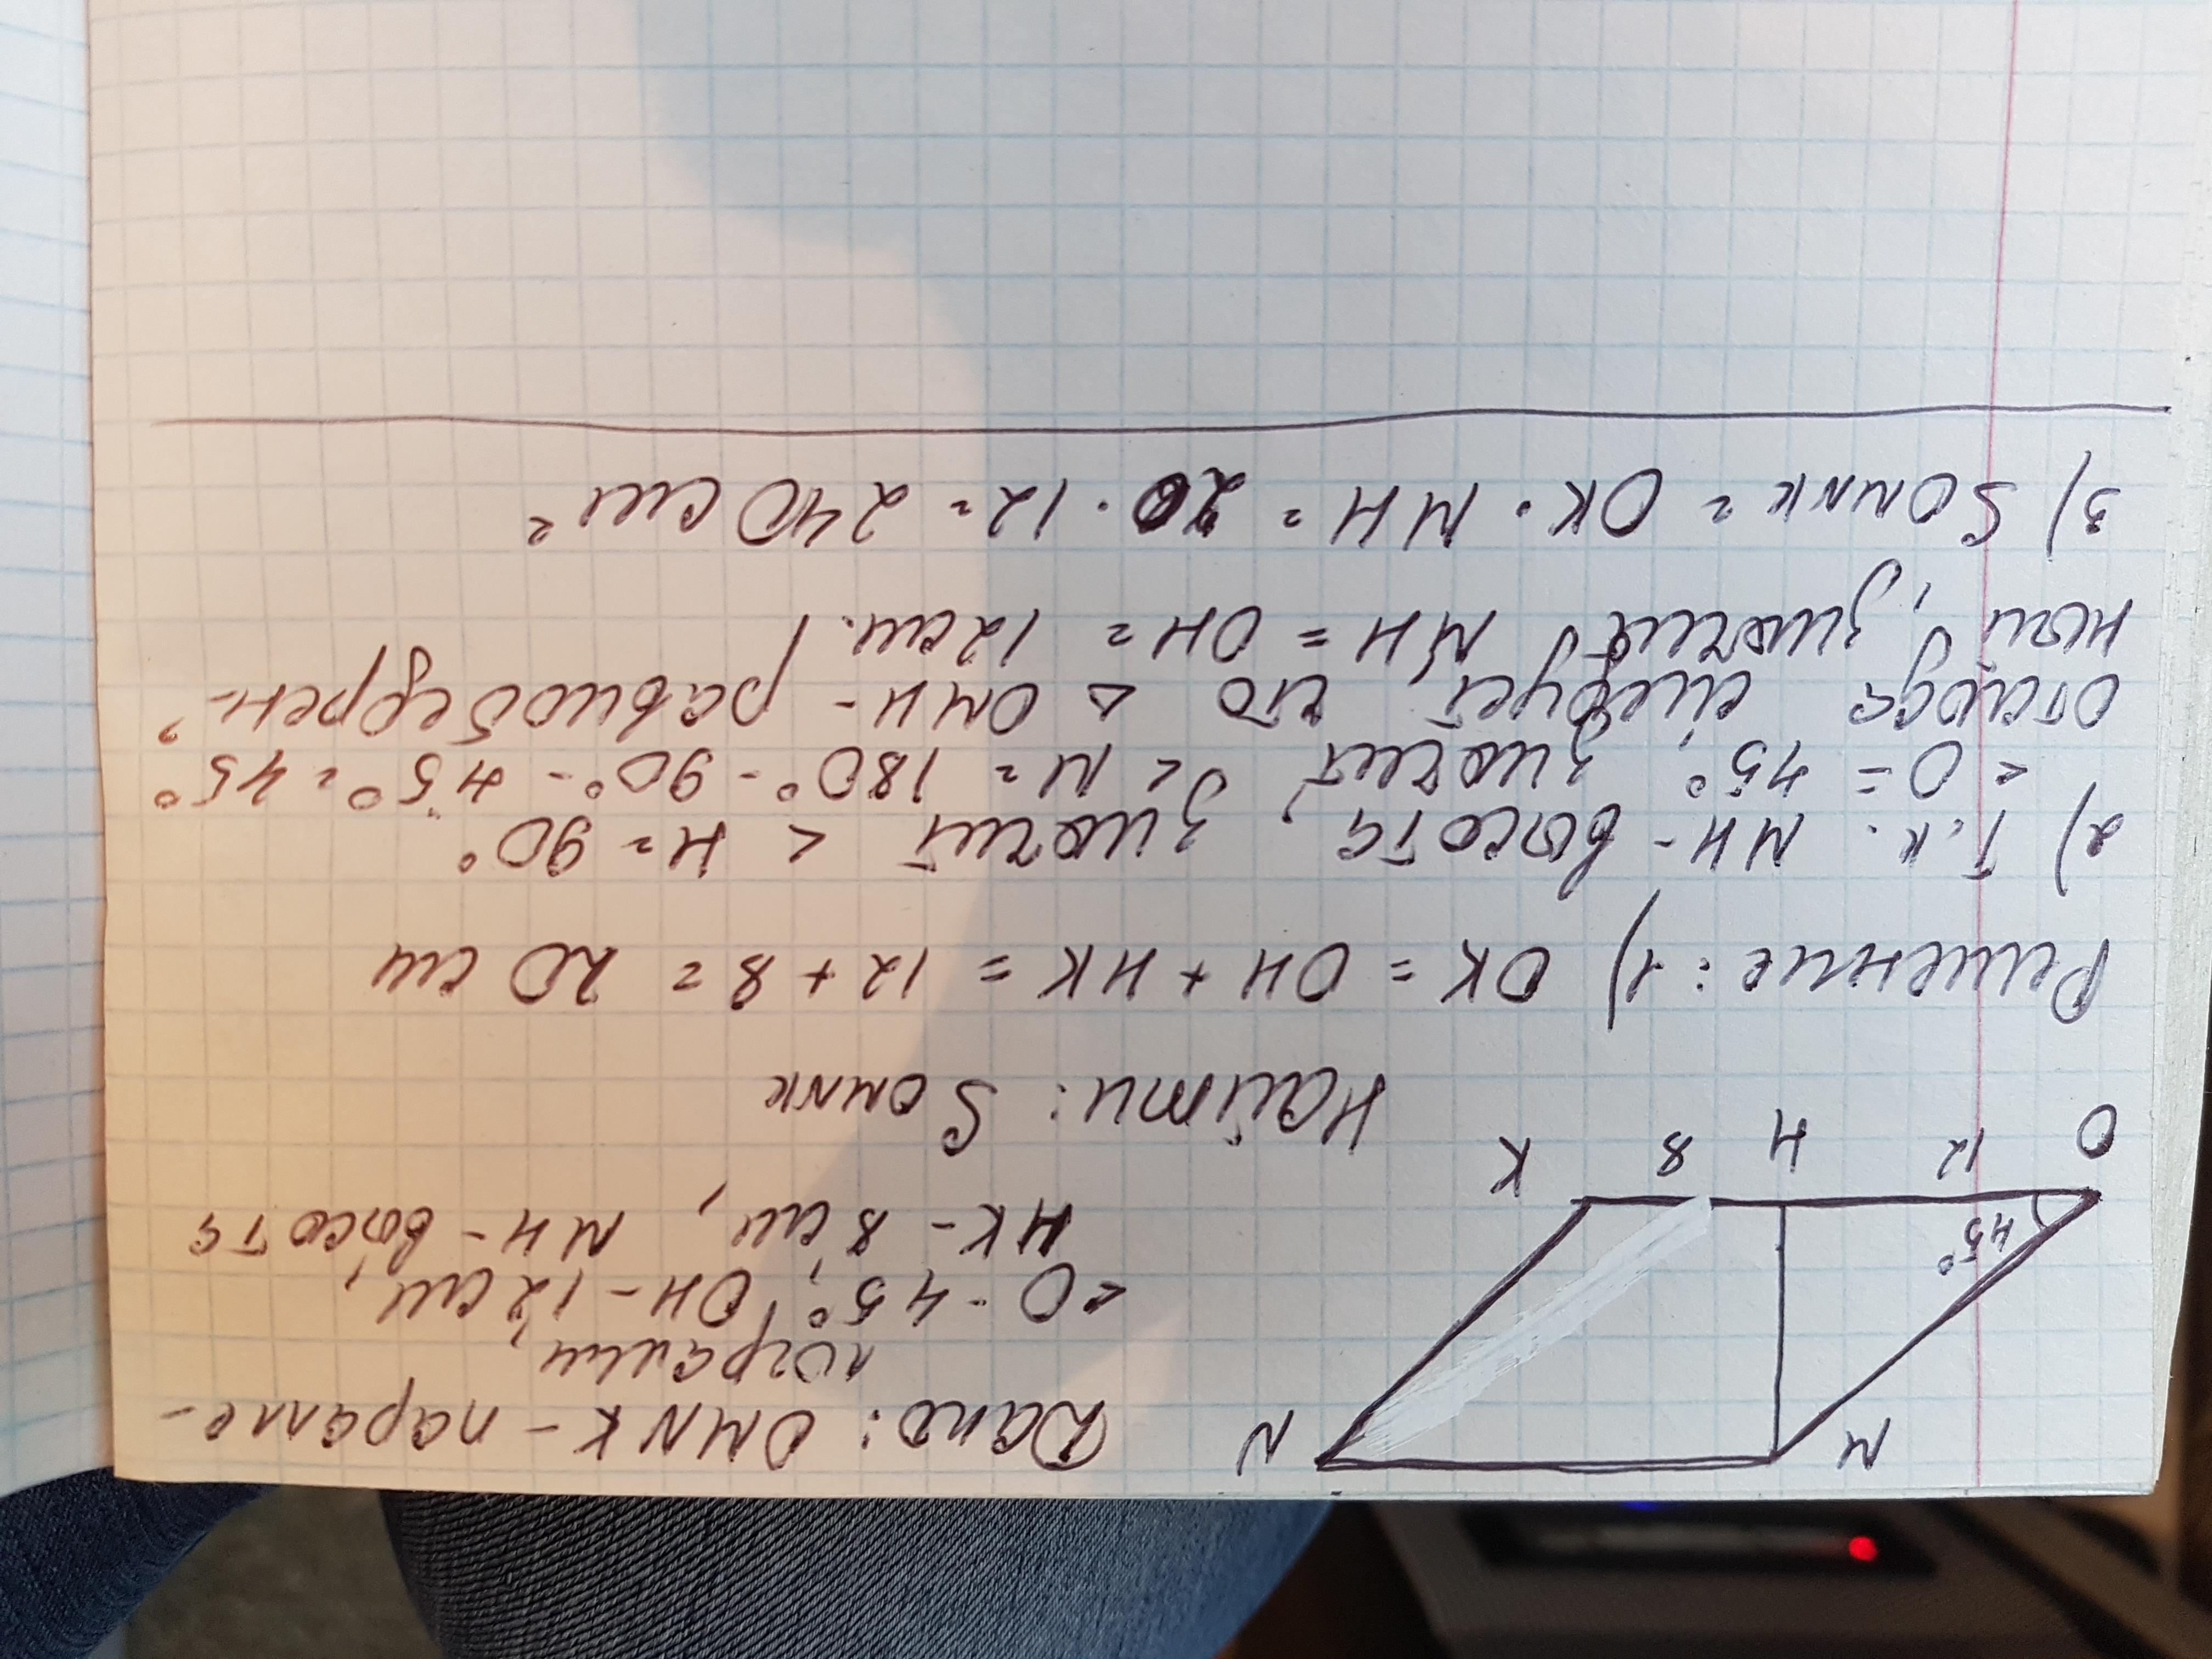 M
N
45°
O
12
H
8
K
Дано: OMNK - паралле-
лограмм,
<O - 45°, OH - 12 см,
HK - 8 см, MH - высота
Найти: S OMNK
Решение: 1) OK = OH + HK = 12 + 8 = 20 см
2) Т.к. MH - высота, значит < H = 90°
< O = 45°, значит < M = 180° - 90° - 45° = 45°,
отсюда следует, что △ OMH - равнобедрен-
ный, значит MH = OH = 12 см.
3) S OMNK = OK · MH = 20 · 12 = 240 см²